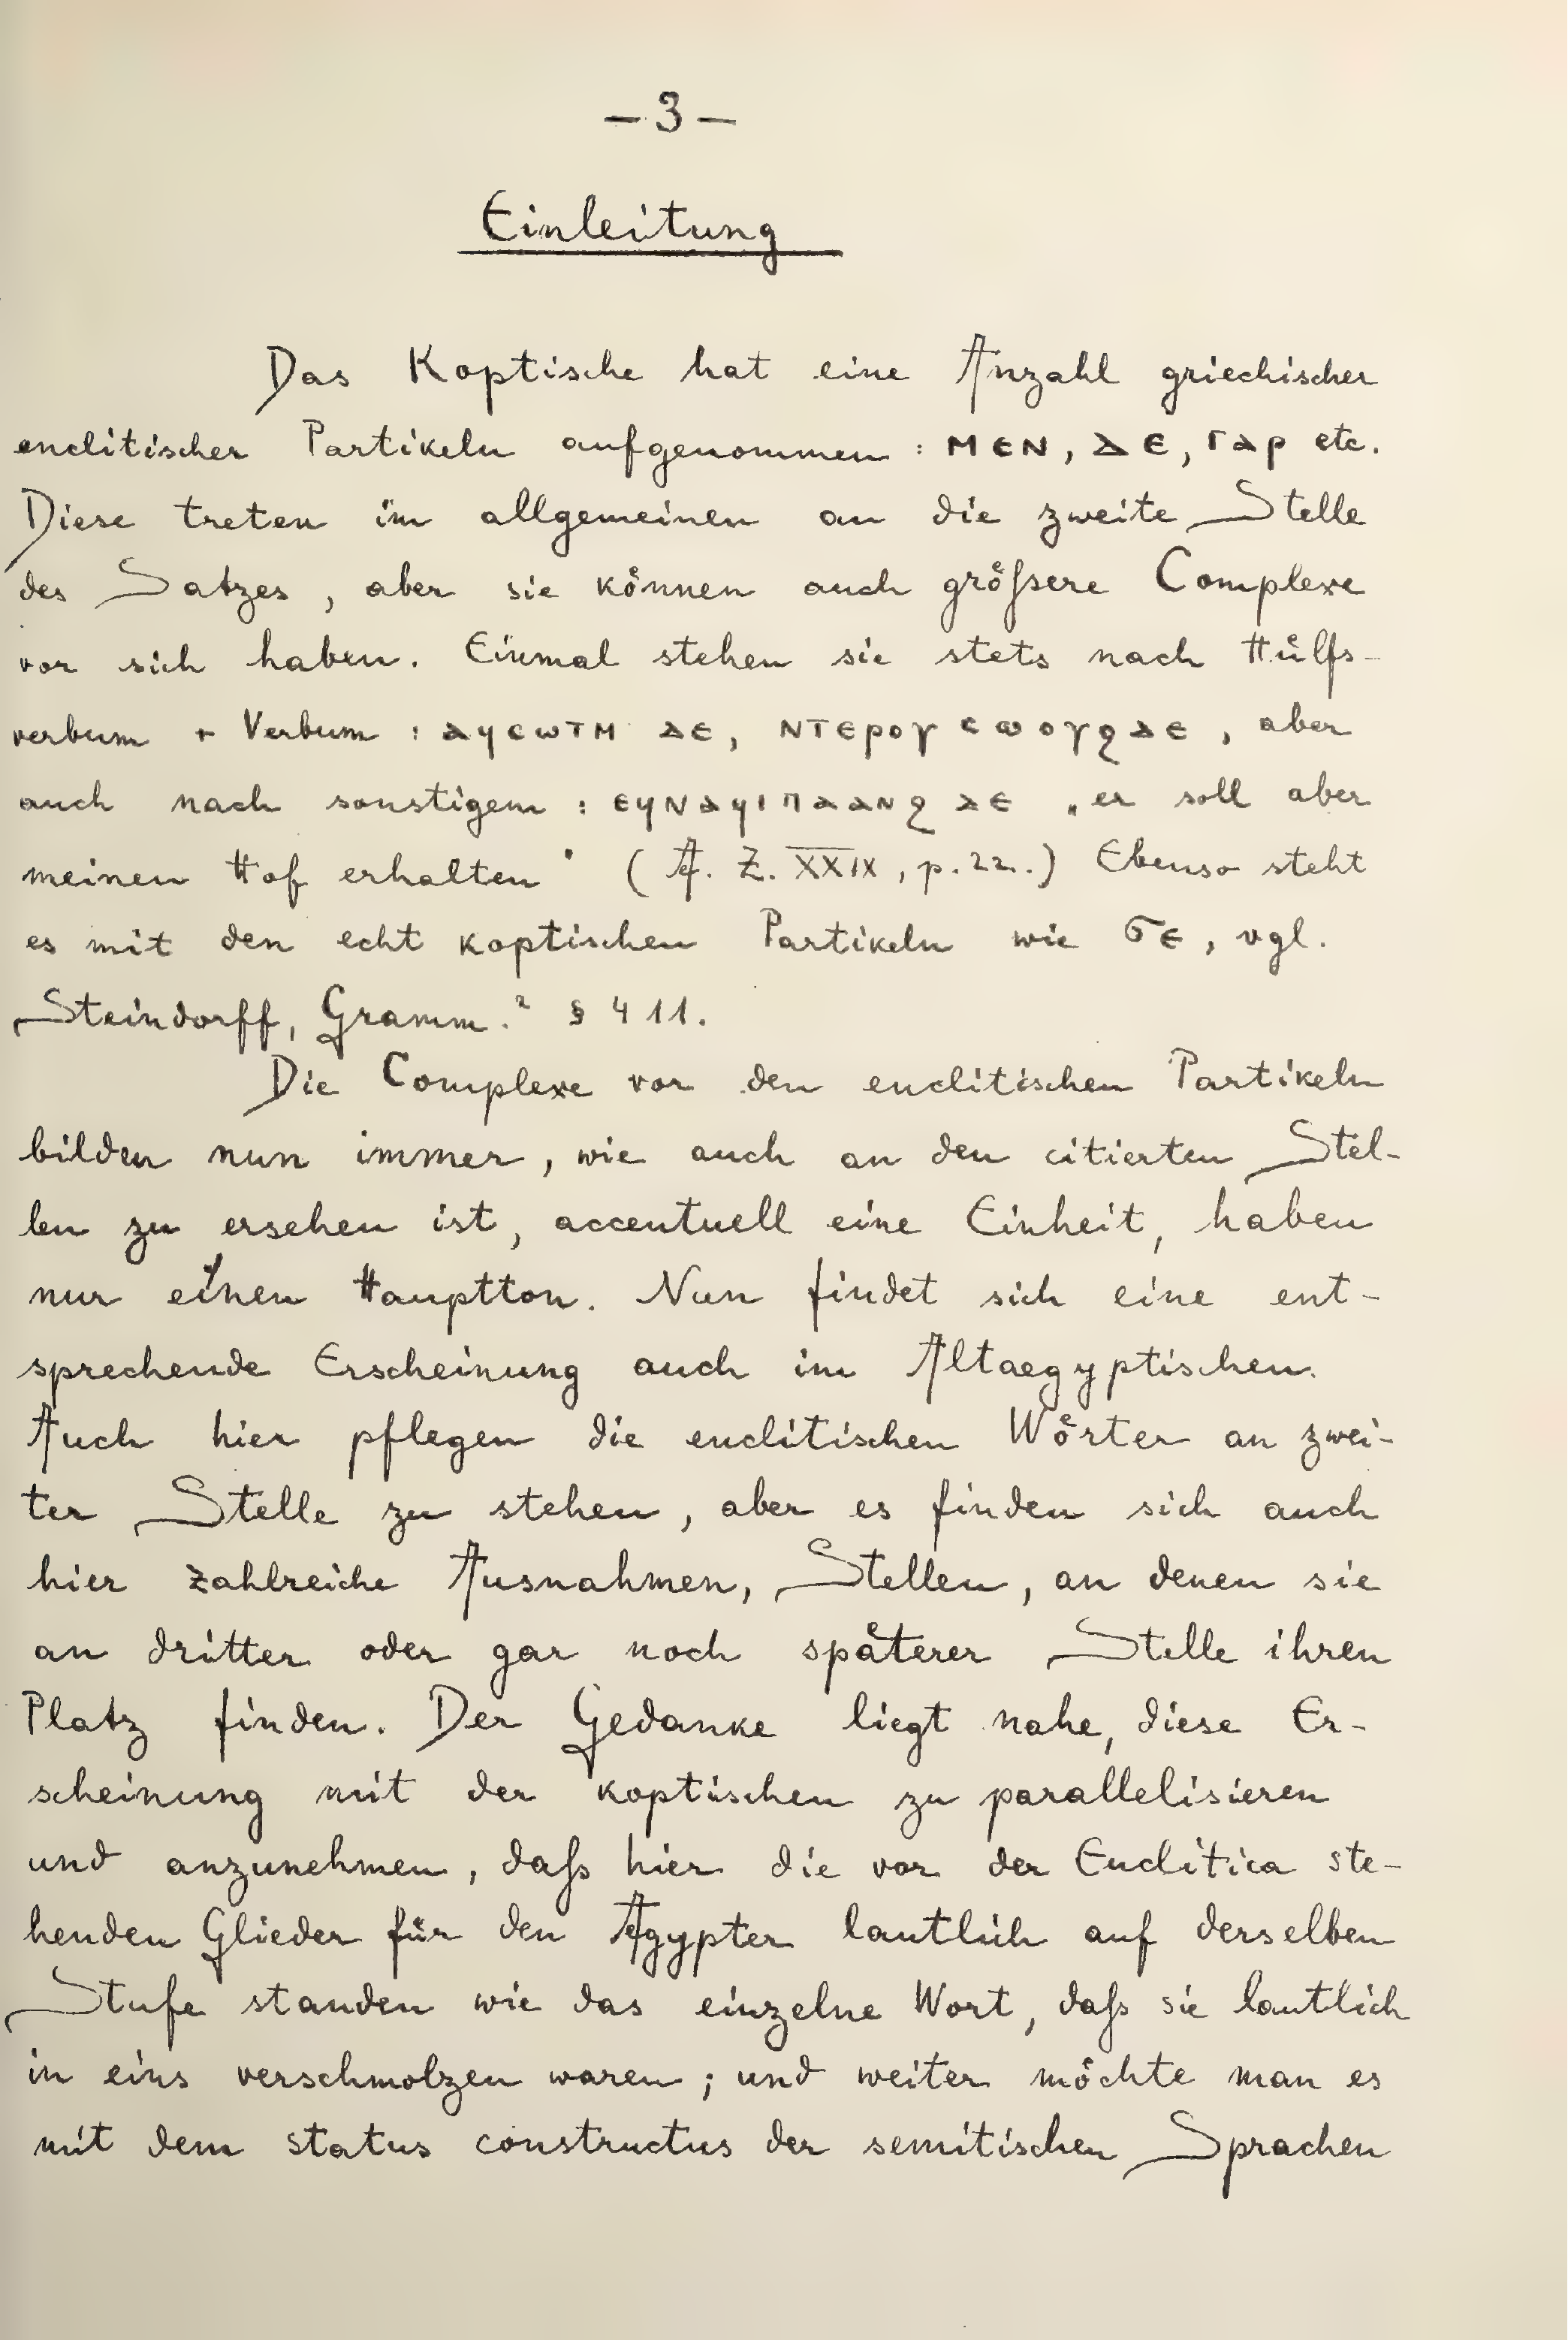 — 3 —
Einleitung
Das Koptische hat eine Anzahl griechischer
enclitischer Partikeln aufgenommen : ⲙⲉⲛ, ⲇⲉ, ⲅⲁⲣ etc.
Diese treten im allgemeinen an die zweite Stelle
des Satzes, aber sie können auch größere Complexe
vor sich haben. Einmal stehen sie stets nach Hülfs-
verbum + Verbum : ⲁϥⲥⲱⲧⲙ ⲇⲉ, ⲛⲧⲉⲣⲟⲩ ⲥⲱⲟⲩϩ ⲇⲉ, aber
auch nach sonstigem : ⲉϥⲛⲁϥⲓⲡⲁⲁⲛϩ ⲇⲉ „er soll aber
meinen Hof erhalten“ (Ä. Z. XXIX, p. 22.) Ebenso steht
es mit den echt koptischen Partikeln wie ϭⲉ, vgl.
Steindorff, Gramm.² § 411.
Die Complexe vor den enclitischen Partikeln
bilden nun immer, wie auch an den citierten Stel-
len zu ersehen ist, accentuell eine Einheit, haben
nur einen Hauptton. Nun findet sich eine ent-
sprechende Erscheinung auch im Altaegyptischen.
Auch hier pflegen die enclitischen Wörter an zwei-
ter Stelle zu stehen, aber es finden sich auch
hier zahlreiche Ausnahmen, Stellen, an denen sie
an dritter oder gar noch späterer Stelle ihren
Platz finden. Der Gedanke liegt nahe, diese Er-
scheinung mit der koptischen zu parallelisieren
und anzunehmen, daß hier die vor der Enclitica ste-
henden Glieder für den Ägypter lautlich auf derselben
Stufe standen wie das einzelne Wort, daß sie lautlich
in eins verschmolzen waren; und weiter möchte man es
mit dem status constructus der semitischen Sprachen